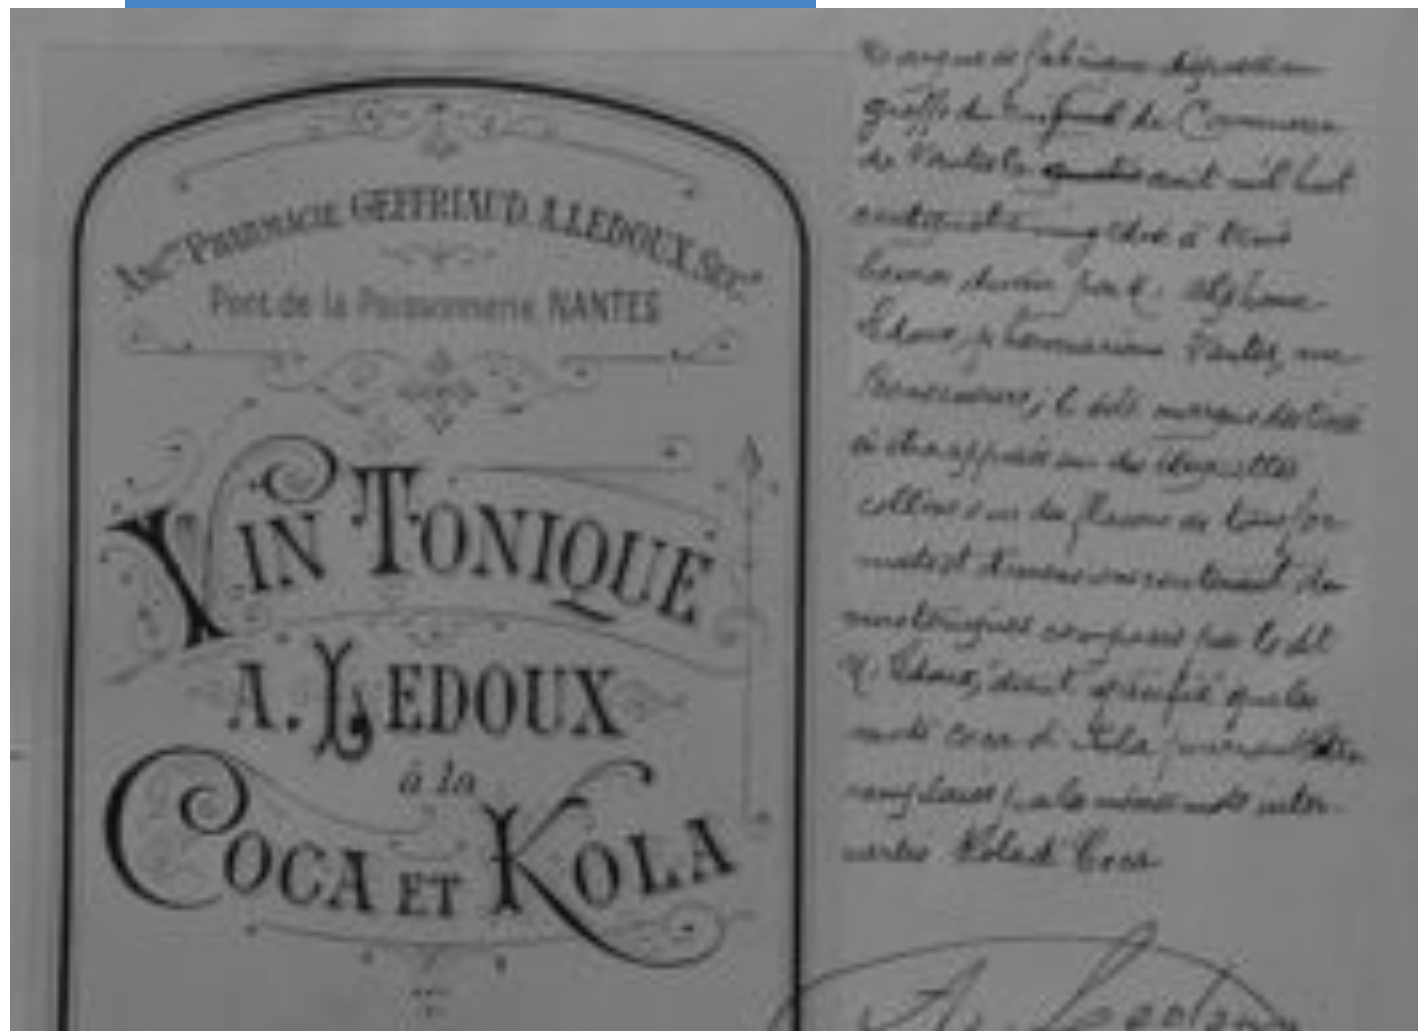 Anc.ne Pharmacie GEFFRIAUD. A. LEDOUX, Succ.r
Pont de la Poissonnerie NANTES
VIN TONIQUE
A. LEDOUX
à la
COCA ET KOLA
marque de fabrique déposée au
greffe du Tribunal de Commerce
de Nantes le quatre août mil huit
à trois
par M. Alphonse
Ledoux, pharmacien à Nantes, rue
; la dite marque destinée
à être apposée sur des étiquettes
collées sur des flacons de tous for-
mats et dimensions contenant du
vin tonique composé par le dit
M. Ledoux, étant spécifié que les
mots coca et Kola pourront être
remplacés par les mêmes mots inter-
vertis Kola et Coca
A. Ledoux